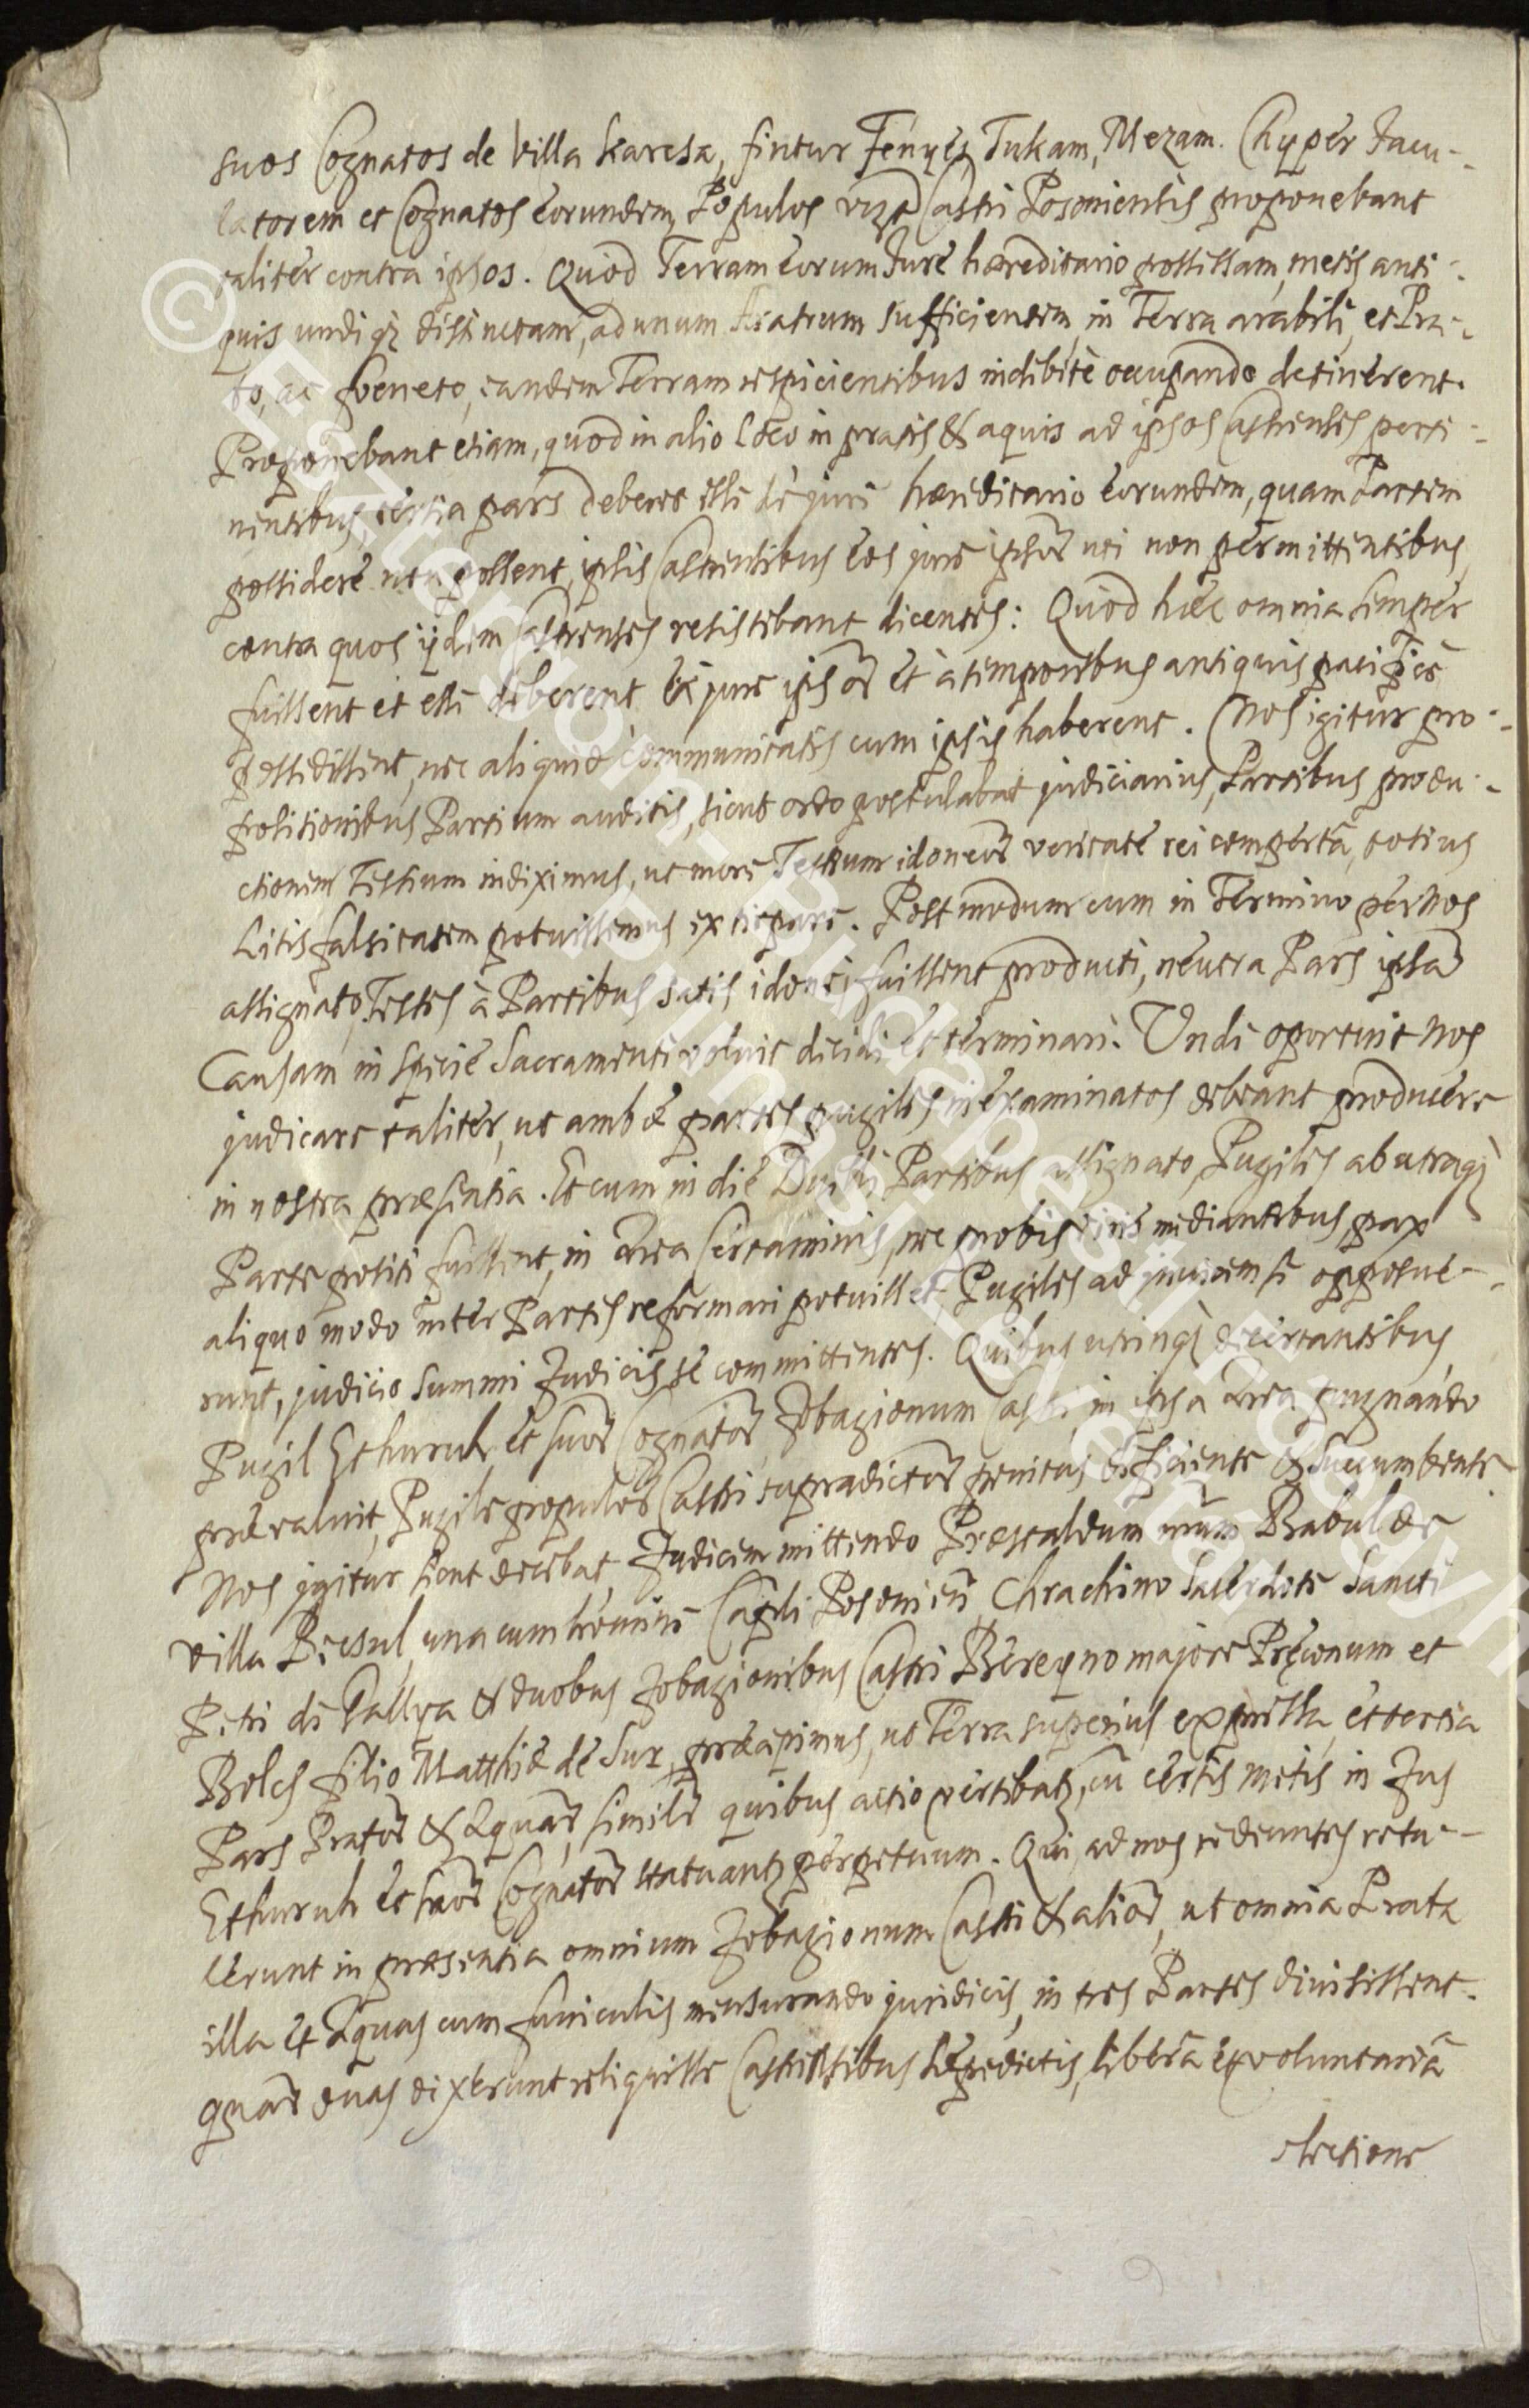 suos Cognatos de Villa Karcsa, sintur Fényes, Tukam, Mezam. Chyper Iacu-
latorem et Cognatos eorundem, Populos vizt Castri Posoniensis proponebant
taliter contra ipsos. Quòd Terram eorum Jure hæreditario possessam, metis anti-
quis undiqz distinctam, ad unum Aratrum sufficientem, in Terra arabili, et Pra-
to, ac foeneto, eandem Terram respicientibus indebitè occupando detinerent.
Proponebant etiam, quod in alio Loco in pratis, & aquis ad ipsos Castrenses perti-
nentibus, tertia pars deberet esse de jure hæreditario eorundem, quam Partem
possidere non possent, ipsis Castrensibus eos jure ipsor uti non permittentibus,
contra quos ijdem Castrenses resistebant dicentes: Quòd hæc omnia semper
fuissent et esse deberent de jure ipsor et à temporibus antiquis pacificè
possedissent, nec aliquid communitatis cum ipsis haberent. Nos igitur pro-
positionibus Partium auditis, sicut ordo postulabat judiciarius, Partibus produ-
ctionem Testium indiximus, ut more Testium idoneor veritate rei compertâ, totius
Litis falsitatem potuissemus extirpare. Postmodum cum in Termino per Nos
assignato, Testes à Partibus satis idonei fuissent producti, neutra Pars ipsam
Causam in specie Sacramenti voluit decidi et terminari. Unde oportuit Nos
judicare taliter, ut ambæ partes pugiles inexaminatos debeant producere
in nostra præsentia. Et cum in die Duelli Partibus assignato, Pugiles ab utraqz
Parte positi fuissent, in Area Certaminis, nec probis viris mediantibus, pax
aliquo modo inter Partes reformari potuisset, Pugiles ad invicem se opposue-
runt, judicio Summi Judicis se committentes. Quibus utrinqz decertantibus,
Pugil Ethuruh et suor Cognator Jobagionum Castri, in ipsa Area pugnando
prævaluit, Pugile populor Castri supradictor penitus deficiente & succumbente.
Nos igitur sicut decebat, Judicem mittendo Præstaldum nrum Babul de
villa Bresul, una cum homine Capli Posonien, Chrachino Sacerdote Sancti
Petri de Pallya & duobus Jobagionibus Castri Bereqno majore Præconum et
Boles filio Matthiæ de Sur, præcepimus, ut Terra superius expressa, et tertia
Pars Prator & Aquar, simili quibus actio vertibatz, cu certis metis in Jus
Ethuruh et suor Cognator statuantz perpetuum. Qui, ad nos redeuntes retu-
lerunt in præsentia omnium Jobagionum Castri & alior, ut omnia Prata
illa et Aquas cum funiculis mensurando juridicis, in tres Partes divisissent.
quar duas dixerunt reliquisse Castrensibus sæpedictis, libera & voluntaria
electione
© Esztergom-Budapesti Főegyh
Prímási Levéltár